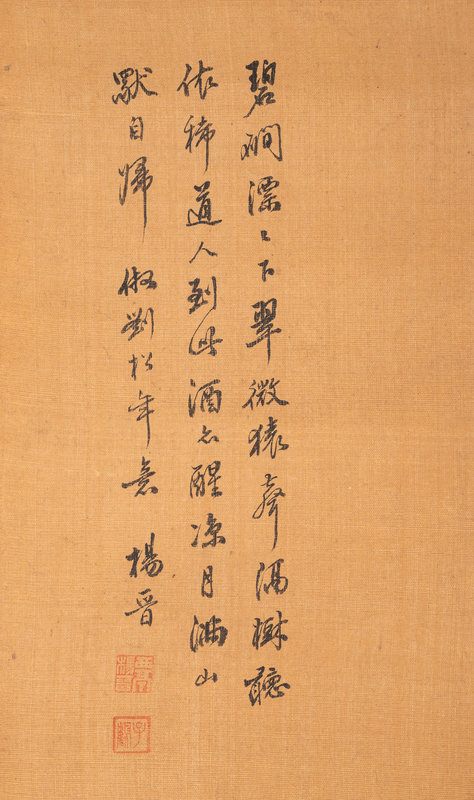 碧澗漂々下翠微猿聲隔樹聽
依稀道人到此酒忽醒凉月滿山
默自歸 倣劉松年意 楊晉
子鶴